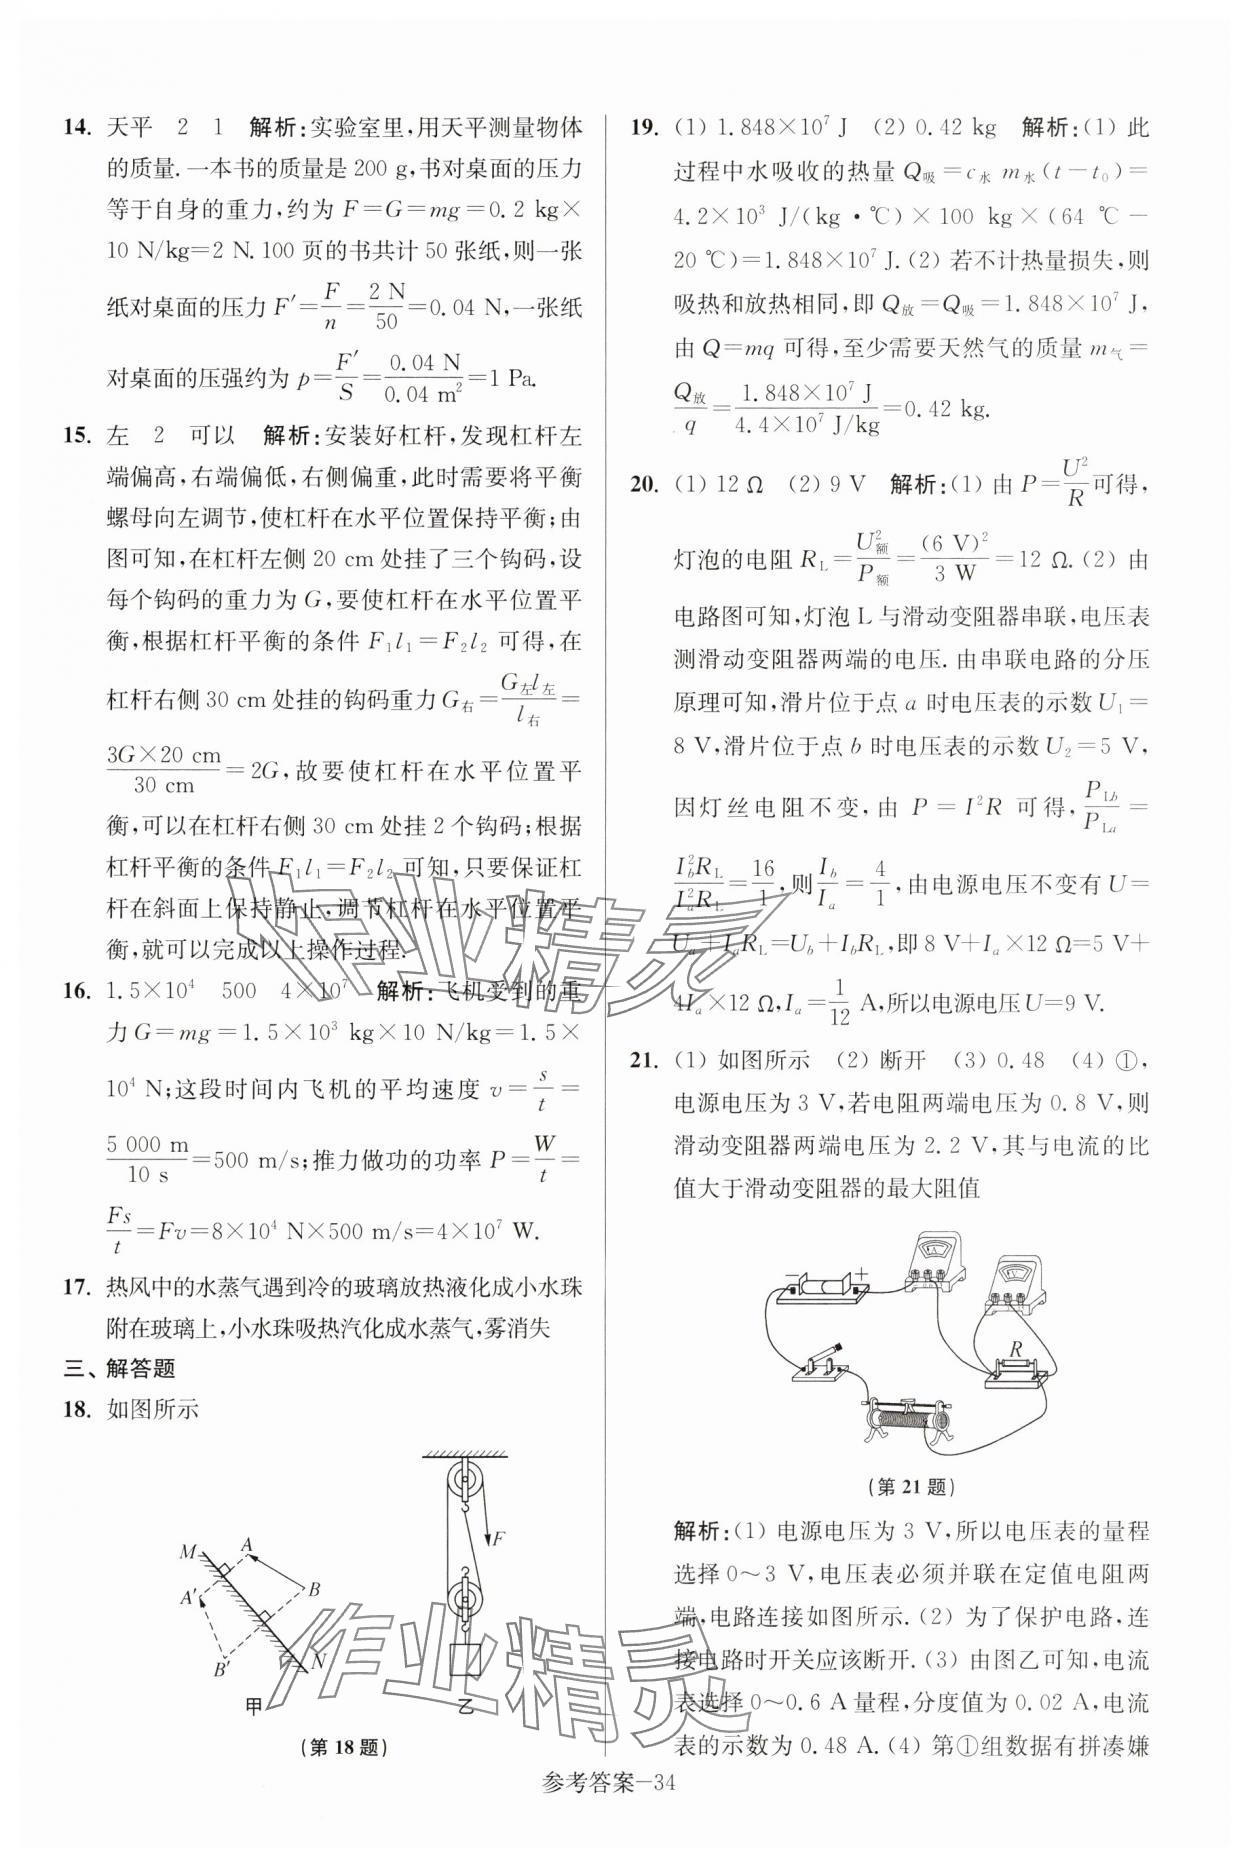 14. 天平 2 1 解析:实验室里,用天平测量物体
的质量.一本书的质量是200 g,书对桌面的压力
等于自身的重力,约为F=G=mg=0.2 kg×
10 N/kg=2 N.100页的书共计50张纸,则一张
纸对桌面的压力F′=F/n=2 N/50=0.04 N,一张纸
对桌面的压强约为p=F′/S=0.04 N/0.04 m²=1 Pa.
15. 左 2 可以 解析:安装好杠杆,发现杠杆左
端偏高,右端偏低,右侧偏重,此时需要将平衡
螺母向左调节,使杠杆在水平位置保持平衡;由
图可知,在杠杆左侧20 cm处挂了三个钩码,设
每个钩码的重力为G,要使杠杆在水平位置平
衡,根据杠杆平衡的条件F₁l₁=F₂l₂可得,在
杠杆右侧30 cm处挂的钩码重力G右=G左l左/l右=
3G×20 cm/30 cm=2G,故要使杠杆在水平位置平
衡,可以在杠杆右侧30 cm处挂2个钩码;根据
杠杆平衡的条件F₁l₁=F₂l₂可知,只要保证杠
杆在斜面上保持静止,调节杠杆在水平位置平
衡,就可以完成以上操作过程.
16. 1.5×10⁴ 500 4×10⁷ 解析:飞机受到的重
力G=mg=1.5×10³ kg×10 N/kg=1.5×
10⁴ N;这段时间内飞机的平均速度v=s/t=
5 000 m/10 s=500 m/s;推力做功的功率P=W/t=
Fs/t=Fv=8×10⁴ N×500 m/s=4×10⁷ W.
17. 热风中的水蒸气遇到冷的玻璃放热液化成小水珠
附在玻璃上,小水珠吸热汽化成水蒸气,雾消失
三、解答题
18. 如图所示
M
A
A′
B
B′
N
甲
F
乙
(第18题)
19. (1) 1.848×10⁷ J (2) 0.42 kg 解析:(1) 此
过程中水吸收的热量Q吸=c水m水(t-t₀)=
4.2×10³ J/(kg·℃)×100 kg×(64 ℃-
20 ℃)=1.848×10⁷ J.(2) 若不计热量损失,则
吸热和放热相同,即Q放=Q吸=1.848×10⁷ J,
由Q=mq可得,至少需要天然气的质量m气=
Q放/q=1.848×10⁷ J/4.4×10⁷ J/kg=0.42 kg.
20. (1) 12 Ω (2) 9 V 解析:(1) 由P=U²/R可得,
灯泡的电阻R_L=U额²/P额=(6 V)²/3 W=12 Ω.(2) 由
电路图可知,灯泡L与滑动变阻器串联,电压表
测滑动变阻器两端的电压.由串联电路的分压
原理可知,滑片位于点a时电压表的示数U₁=
8 V,滑片位于点b时电压表的示数U₂=5 V,
因灯丝电阻不变,由P=I²R可得,P_Lb/P_La=
I_b²R_L/I_a²R_L=16/1,则I_b/I_a=4/1,由电源电压不变有U=
U_a+I_aR_L=U_b+I_bR_L,即8 V+I_a×12 Ω=5 V+
4I_a×12 Ω,I_a=1/12 A,所以电源电压U=9 V.
21. (1) 如图所示 (2) 断开 (3) 0.48 (4) ①,
电源电压为3 V,若电阻两端电压为0.8 V,则
滑动变阻器两端电压为2.2 V,其与电流的比
值大于滑动变阻器的最大阻值
- +
A
R
(第21题)
解析:(1) 电源电压为3 V,所以电压表的量程
选择0~3 V,电压表必须并联在定值电阻两
端,电路连接如图所示.(2) 为了保护电路,连
接电路时开关应该断开.(3) 由图乙可知,电流
表选择0~0.6 A量程,分度值为0.02 A,电流
表的示数为0.48 A.(4) 第①组数据有拼凑嫌
参考答案-34
作业精灵
作业精灵